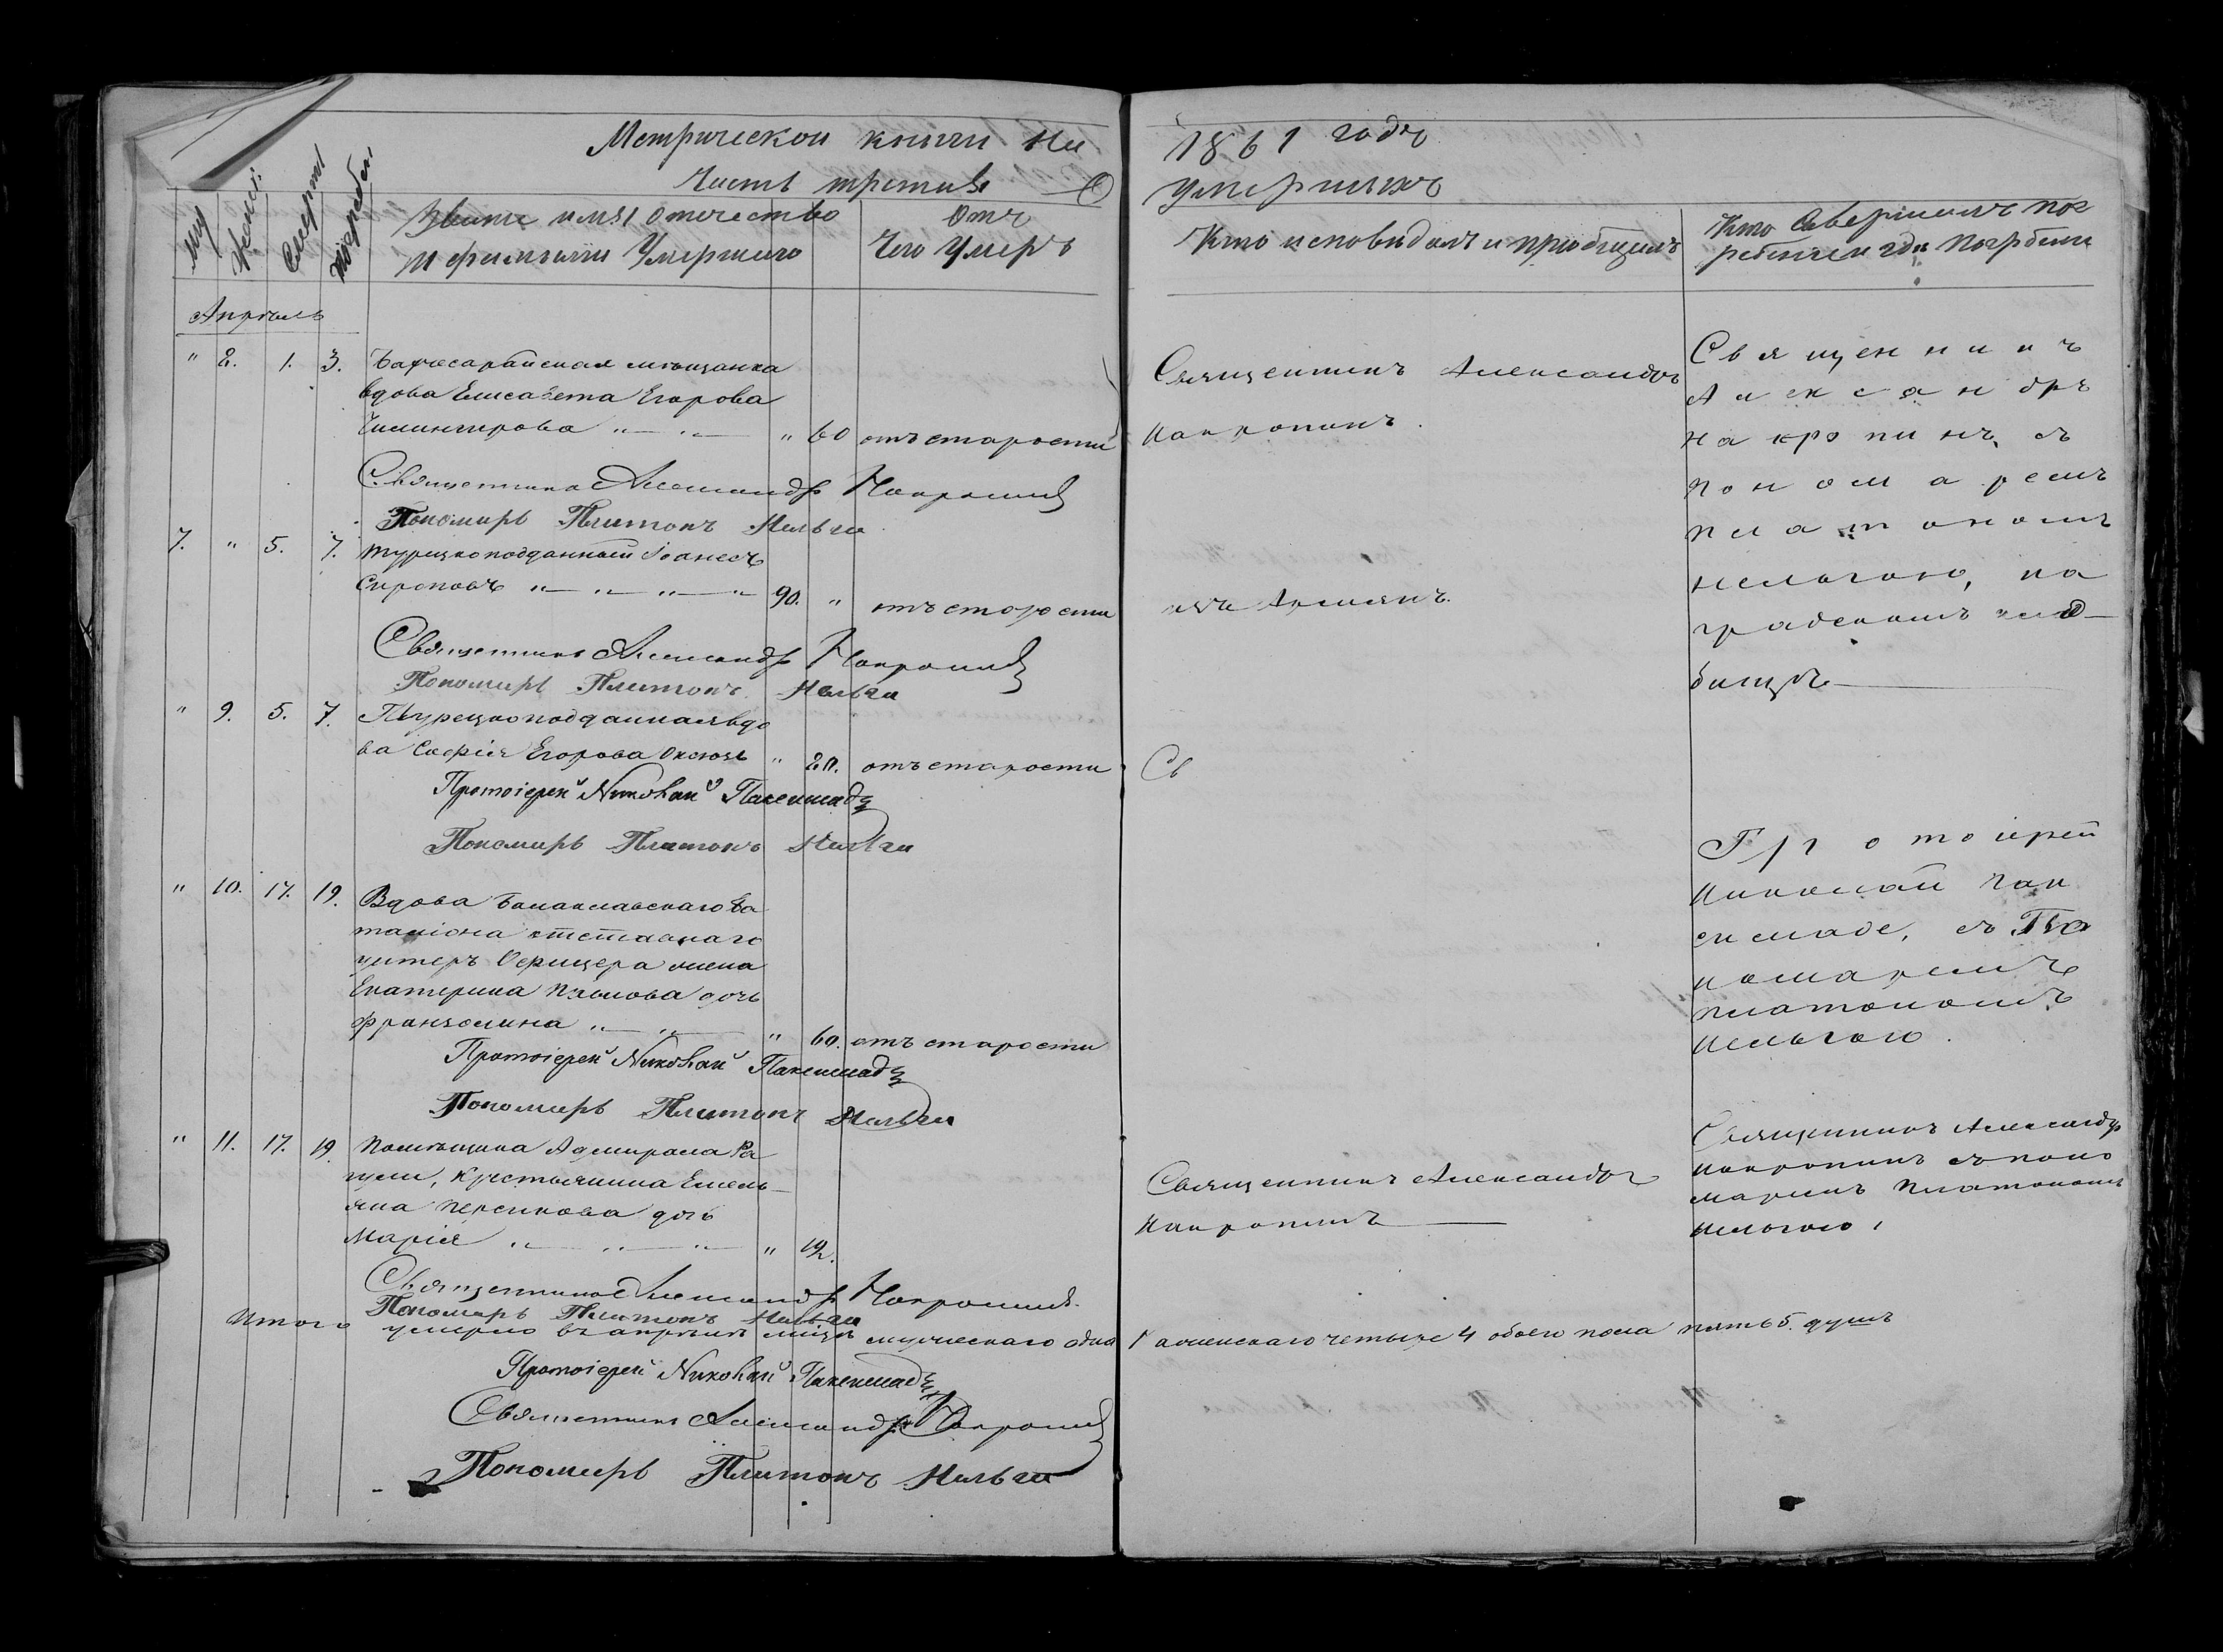 Метрической книги на 1861 годъ
Часть третія О умершихъ
муж женс: Смерти погребен
Званіе имя, отечество и фамиліи Умершаго
Отъ чего Умеръ
Кто исповѣдалъ и пріобщилъ
Кто Совершалъ пог
ребеніе и гдѣ погребены
Апрѣль
" 2. 1. 3. Бахчесарайская мѣщанка
вдова Елисавета Егорова
Чилингирова " 60 отъ старости
Священникъ Александръ Накропинъ
Пономарь Платонъ Нельга
Священникъ Александръ
Накропинъ.
Священникъ
Александръ
Накропинъ, съ
пономаремъ
платономъ
нельгою, на
градскомъ клад
бищѣ
7. " 5. 7. турецкоподданный Іоанесъ
Сироповъ " 90. " отъ старости
изъ Армянъ.
Священникъ Александръ Накропинъ
Пономарь Платонъ Нельга
" 9. 5. 7. Турецкоподданная вдо
ва Софія Егорова " 80. отъ старости
Св
Протоіерей Николай
Пономарь Платонъ Нельга
Протоіерей
Николай
съ По
номаремъ
платономъ
Нельгою.
" 10. 17. 19. Вдова Балаклавскаго ба
таліона отставнаго
унтеръ Офицера жена
Екатерина Павлова дочь
" 60. отъ старости
Протоіерей Николай
Пономарь Платонъ Нельга
" 11. 17. 19. Помѣщика Адмирала Ра
гули, Крестьянина Емель
яна Персикова дочь
Марія " 12.
Священникъ Александръ
Накропинъ
Священникъ Александръ
Накропинъ съ поно
маремъ Платономъ
Нельгою,
Священникъ Александръ Накропинъ.
Пономарь Платонъ Нельга
Итого умерло въ апрѣлѣ мѣсяцѣ мужескаго одна 1 а женскаго четыре 4 обоего пола пять 5. душъ
Протоіерей Николай
Священникъ Александръ Накропинъ
Пономарь Платонъ Нельга